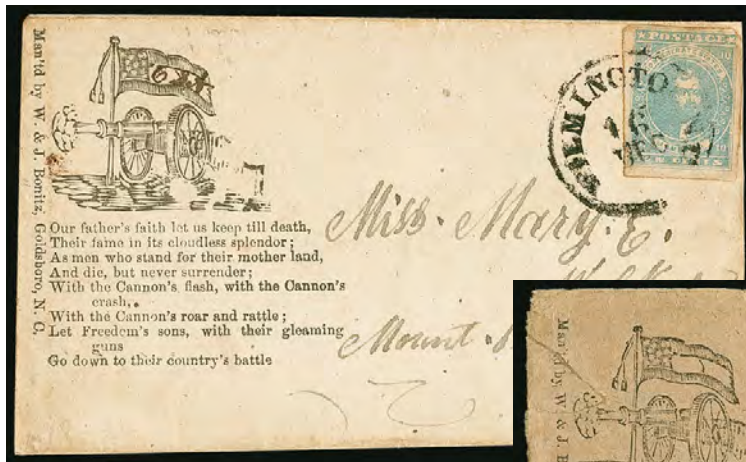 Man'd by W. & J. Bonitz, Goldsboro, N. C.
Our father's faith let us keep till death,
Their fame in its cloudless splendor;
As men who stand for their mother land,
And die, but never surrender;
With the Cannon's flash, with the Cannon's
crash,
With the Cannon's roar and rattle;
Let Freedom's sons, with their gleaming
guns
Go down to their country's battle
POSTAGE
10
10
CENTS
Miss. Mary. E.
Mount
Man'd by W. & J. B